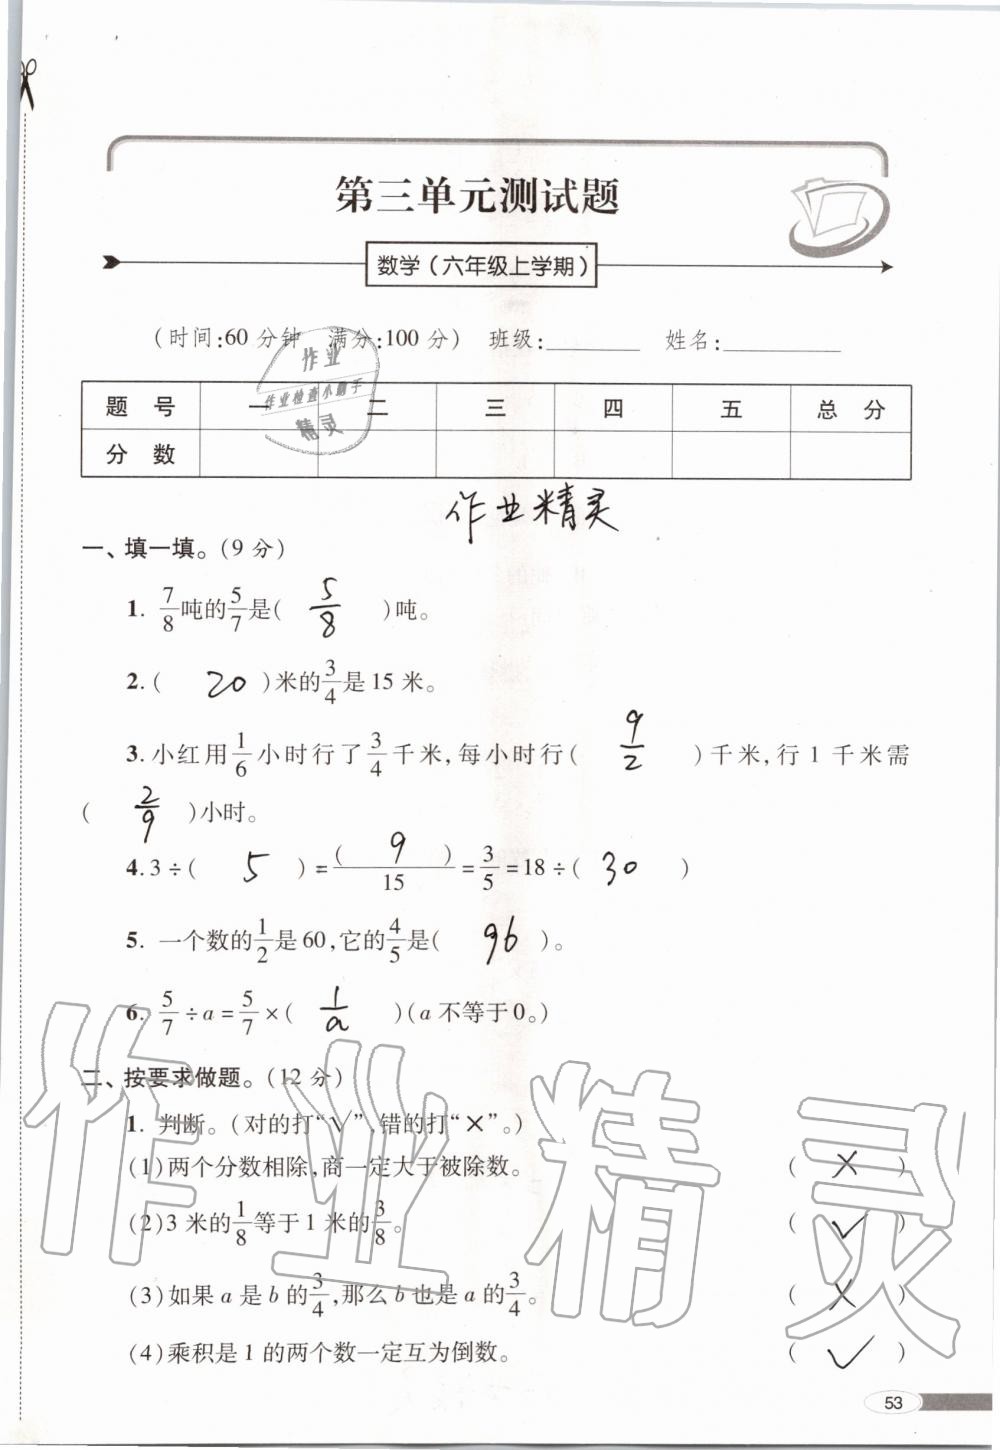 第三单元测试题
数学(六年级上学期)
(时间:60分钟 满分:100分) 班级:________ 姓名:________
作业
作业检查小助手
精灵
题 号 一 二 三 四 五 总 分
分 数
作业精灵
一、填一填。(9分)
1. 7/8吨的5/7是( 5/8 )吨。
2.( 20 )米的3/4是15米。
3.小红用1/6小时行了3/4千米,每小时行( 9/2 )千米,行1千米需
( 2/9 )小时。
4.3÷( 5 )=( 9 )/15=3/5=18÷( 30 )
5. 一个数的1/2是60,它的4/5是( 96 )。
6. 5/7÷a=5/7×( 1/a )(a不等于0。)
二、按要求做题。(12分)
1. 判断。(对的打“√”,错的打“×”。)
(1)两个分数相除,商一定大于被除数。 ( × )
(2)3米的1/8等于1米的3/8。 ( ✓ )
(3)如果a是b的3/4,那么b也是a的3/4。 ( × )
(4)乘积是1的两个数一定互为倒数。 ( ✓ )
作业精灵
53